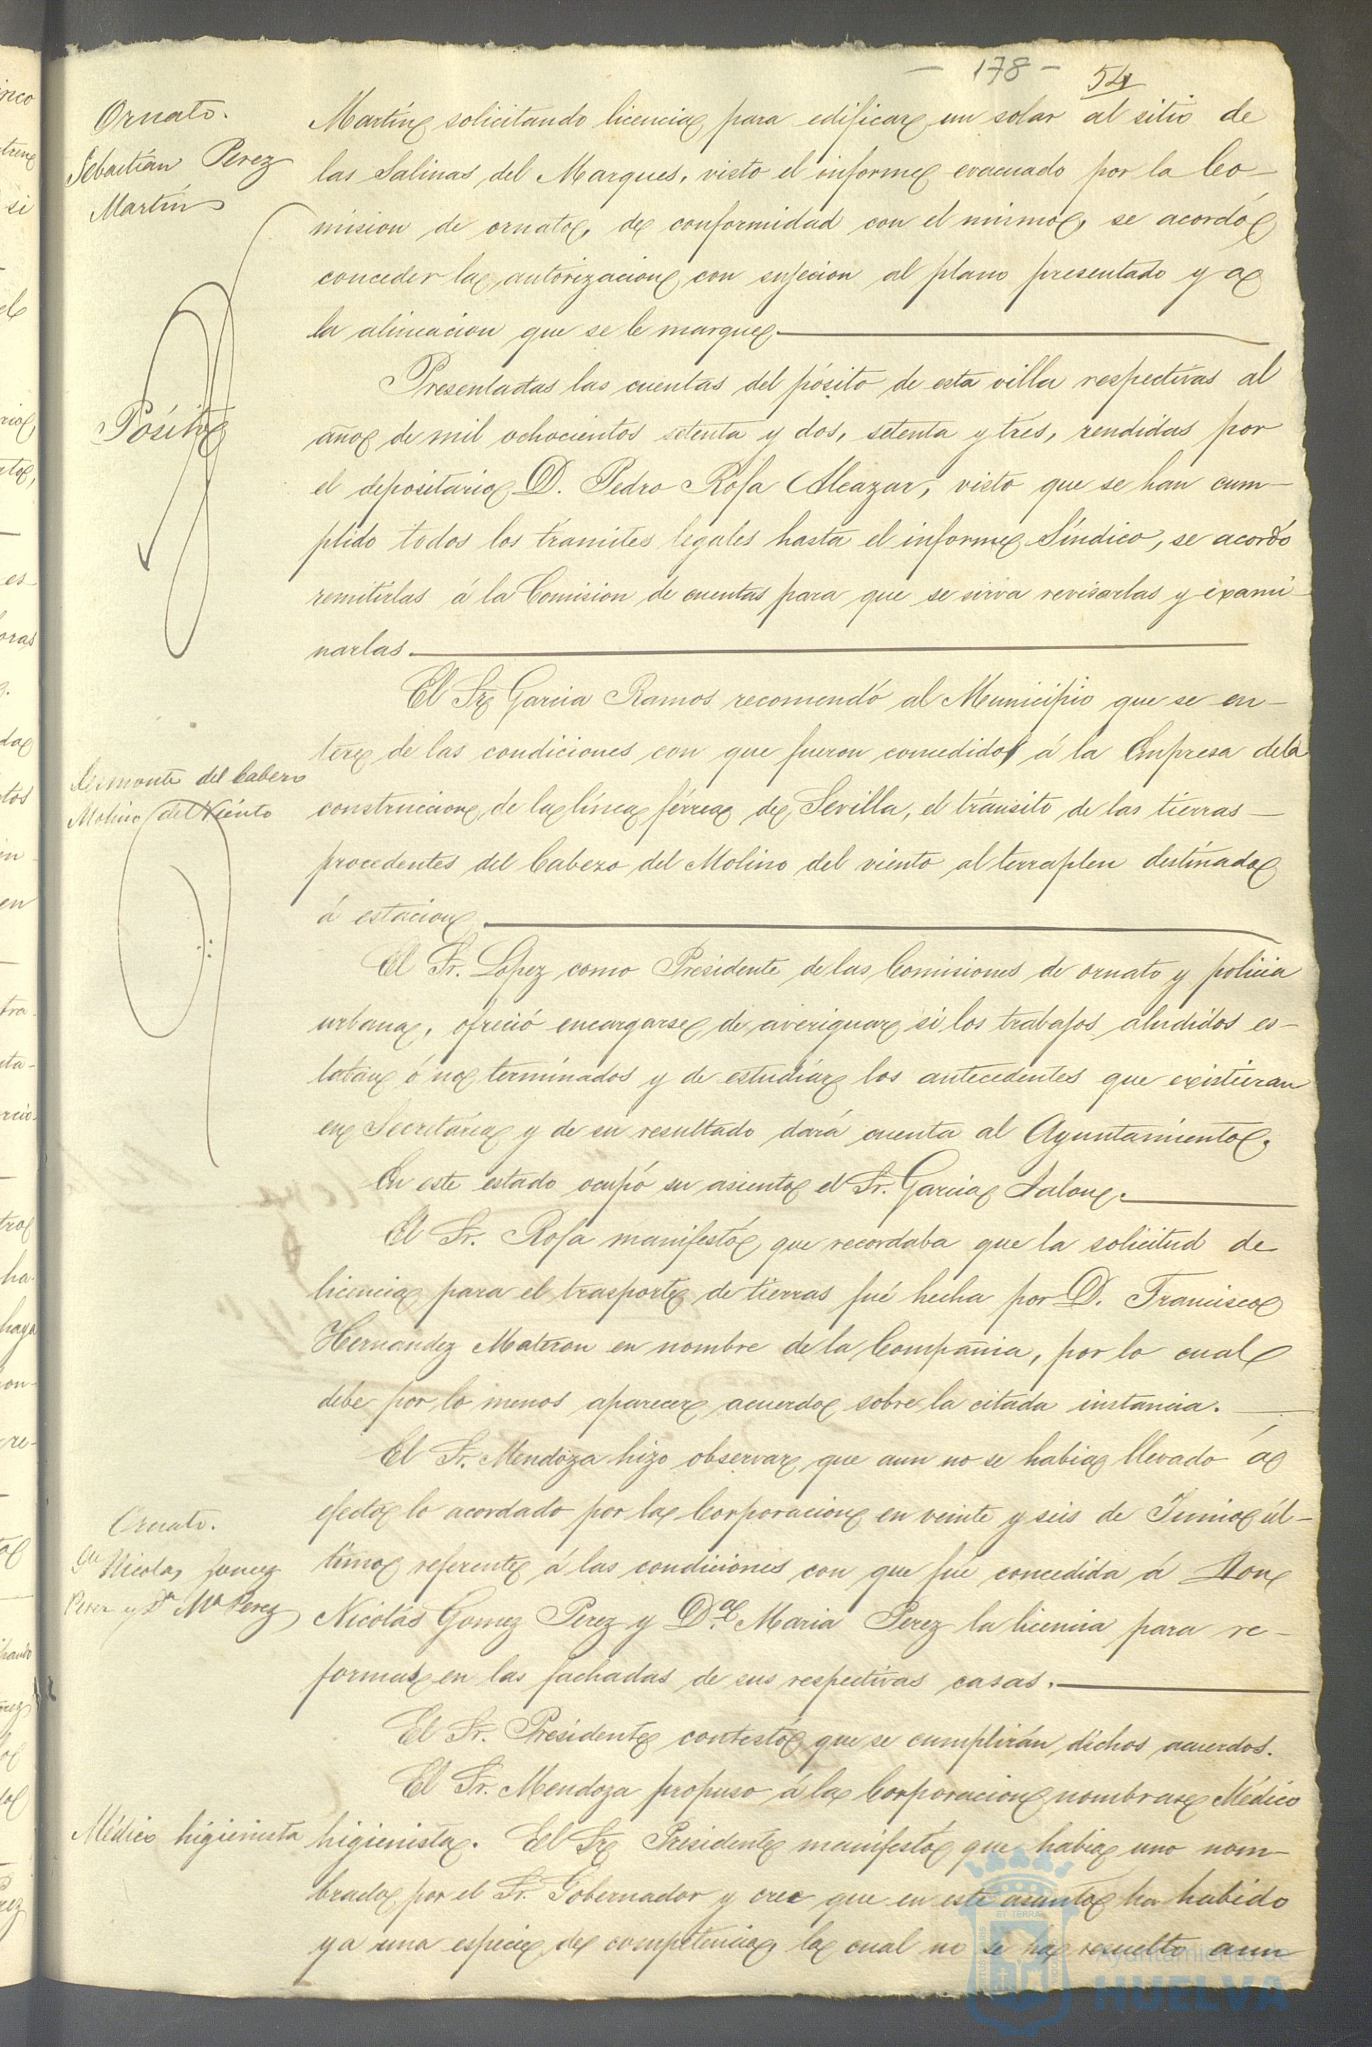 - 178 -
54
Ornato.
Sebastián Perez
Martin
Martin solicitando licencia para edificar un solar al sitio de
las Salinas del Marques, visto el informe evacuado por la Co-
mision de ornato, de conformidad con el mismo, se acordó
conceder la autorizacion con sujecion al plano presentado y a
la alineacion que se le marque.
Pósito
Presentadas las cuentas del pósito de esta villa respectivas al
año de mil ochocientos setenta y dos, setenta y tres, rendidas por
el depositario D. Pedro Rofa Alcazar, visto que se han cum-
plido todos los trámites legales hasta el informe Síndico, se acordó
remitirlas á la Comision de cuentas para que se sirva revisarlas y exami-
narlas.
Desmonte del Cabezo
Molino del Viento
El Sr Garcia Ramos recomendó al Municipio que se en-
tere de las condiciones con que fueron concedidos á la Empresa dela
construccion de la línea férrea de Sevilla, el tránsito de las tierras
procedentes del Cabezo del Molino del viento al terraplen destinado
á estacion.
El Sr. López como Presidente de las Comisiones de ornato y policia
urbana, ofreció encargarse de averiguar si los trabajos aludidos es-
taban ó no terminados y de estudiar los antecedentes que existieran
en Secretaría y de su resultado dará cuenta al Ayuntamiento.
En este estado ocupó su asiento el Sr. Garcia Jalon.
El Sr. Rofa manifestó que recordaba que la solicitud de
licencia para el trasporte de tierras fué hecha por D. Francisco
Hernandez Materon en nombre de la Compañia, por lo cual
debe por lo menos aparecer acuerdo sobre la citada instancia.
El Sr. Mendoza hizo observar que aun no se habia llevado á
efecto lo acordado por la Corporacion en veinte y seis de Junio úl-
timo referente á las condiciones con que fué concedida á Don
Nicolás Gomez Perez y D.ª Maria Perez la licencia para re-
formas en las fachadas de sus respectivas casas.
Ornato.
Nicolas Gomez
Perez y Dª Mª Perez
El Sr. Presidente contestó que se cumplirán dichos acuerdos.
El Sr. Mendoza propuso á la Corporacion nombrase Médico
Médico higienista
higienista. El Sr Presidente manifestó que habia uno nom-
brado por el Sr. Gobernador y cree que en este asunto ha habido
ya una especie de competencia, la cual no se ha resuelto aun
Ayuntamiento de
HUELVA